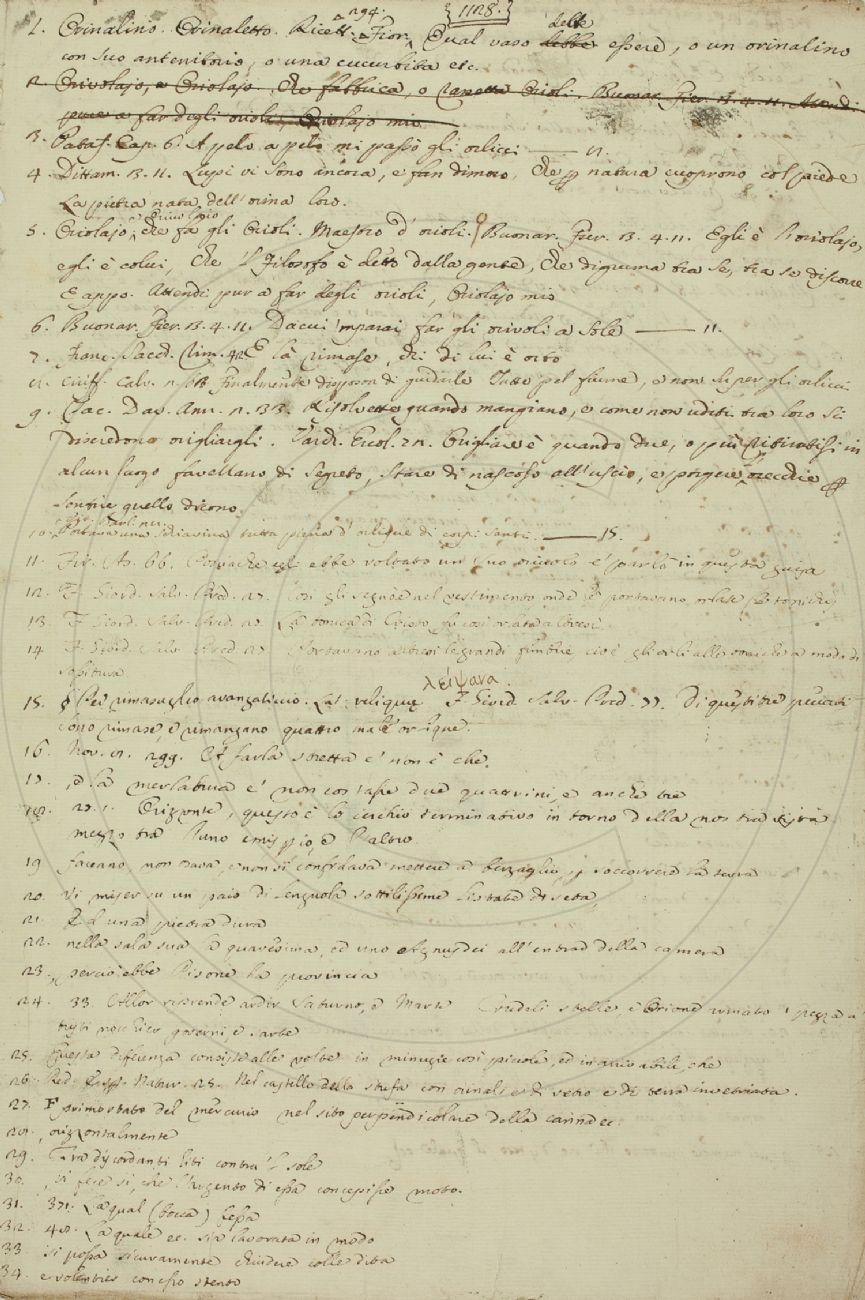 {1128.}
1. Orinalino. Orinaletto. Ricett. Fior. 294. Qual vaso debbe delle essere, o un orinalino
con suo antenitorio, o una cucurbita etc.
2. Orivolajo, e Oriolajo. Che fabbrica, o rassetta Orioli. Buonar. Fier. 3. 4. 11. Attendi
pure a far degli orioli, Oriolajo mio
3. Pataf. Cap. 6. A pelo a pelo mi passò gli orlicci — 11.
4. Dittam. 3. 11. Lupi vi sono ancora, e fan dimoro, Che per natura cuoprono col piede
La pietra nata dell'orina loro.
5. Oriolajo, che fa gli Orioli. Maestro d'orioli. Buonar. Fier. 3. 4. 11. Egli è l'oriolajo,
egli è colui, Che 'l Filosofo è detto dalla gente, Che digruma tra se, tra se discorre
E appo. Attendi pur a far degli orioli, Oriolajo mio
6. Buonar. Fier. 3. 4. 11. Da cui 'mparai far gli orivoli a Sole — 11.
7. Franc. Sacch. Rim. 42 E là rimase, chi di lui è orbo
8. Ciriff. Calv. Finalmente disposon di guidarle Tutte pel fiume, e non su per gli orlicci
9. Tac. Dav. Ann. 33. Risolvette quando mangiano, e come non uditi tra loro si
discredono origliargli. Varch. Ercol. Origliare è quando due, o più ritiratisi in
alcun luogo favellano di segreto, stare di nascoso all'uscio, e porgere orecchie per
sentire quello dicono.
10. Portava una schiavina tutta piena d'orlique di corpi santi. — 15.
11. Fir. As. 66. Posciachè egli ebbe voltato un suo oricolo e' parlò in questa guisa
12. F. Giord. Salv. Pred. 27. Così gli segnò nel vestimento onde e' portavano orlate le toniche
13. F. Giord. Salv. Pred. 27. La tonica di Cristo fu così orlata
14. F. Giord. Salv. Pred. 27. Portavano altresì le grandi fimbrie cioè gli orli alle toniche a modo di
15. Per rimasuglio avanzaticcio. Lat. reliquiae λείψανα. F. Giord. Salv. Pred. 77. Di questi tre peccati
sono rimase, e rimangano quattro male orlique.
16. Nov. 299. Il farla stretta e' non è che,
17. , e la merlatura e' non costasse due quattrini, e anche tre
18. 27. 1. Orizzonte, questo è lo cerchio terminativo intorno della nostra vista
mezzo tra l'uno emisperio, e l'altro
19 faceano non osava, e non si confidava mettere a berzaglio, per soccorrere la terra
20. Vi miser su un paio di lenzuola sottilissime listate di seta,
21. Ed una pietra dura
22. nella sala sua la quaresima, ed uno Agnusdei all'entrar della camera
23. , perciò ebbe Pisone la provincia
24. 33. Allor riprende ardir Saturno, e Marte Crudeli stelle, e Orione armato spezza a
tristi nocchier governi, e sarte
25. Questa differenza consiste alle volte in minuzie così piccole, ed inarrivabili, che
26. Red. Esp. Natur. 25. Nel castello della stufa con orinali, e di vetro e di terra invetriata.
27. F primo stato del mercurio nel sito perpendicolare della canna ec.
28. , orizzontalmente
29. Tra discordanti liti contra 'l sole
30. , si fece sì, che l'argento di essa concepisse moto.
31. 371. La qual (bocca) bessa
32. 48. La quale ec. sia lavorata in modo
33 si possa sicuramente chiudere colle dita
34. e volentier con esso stento